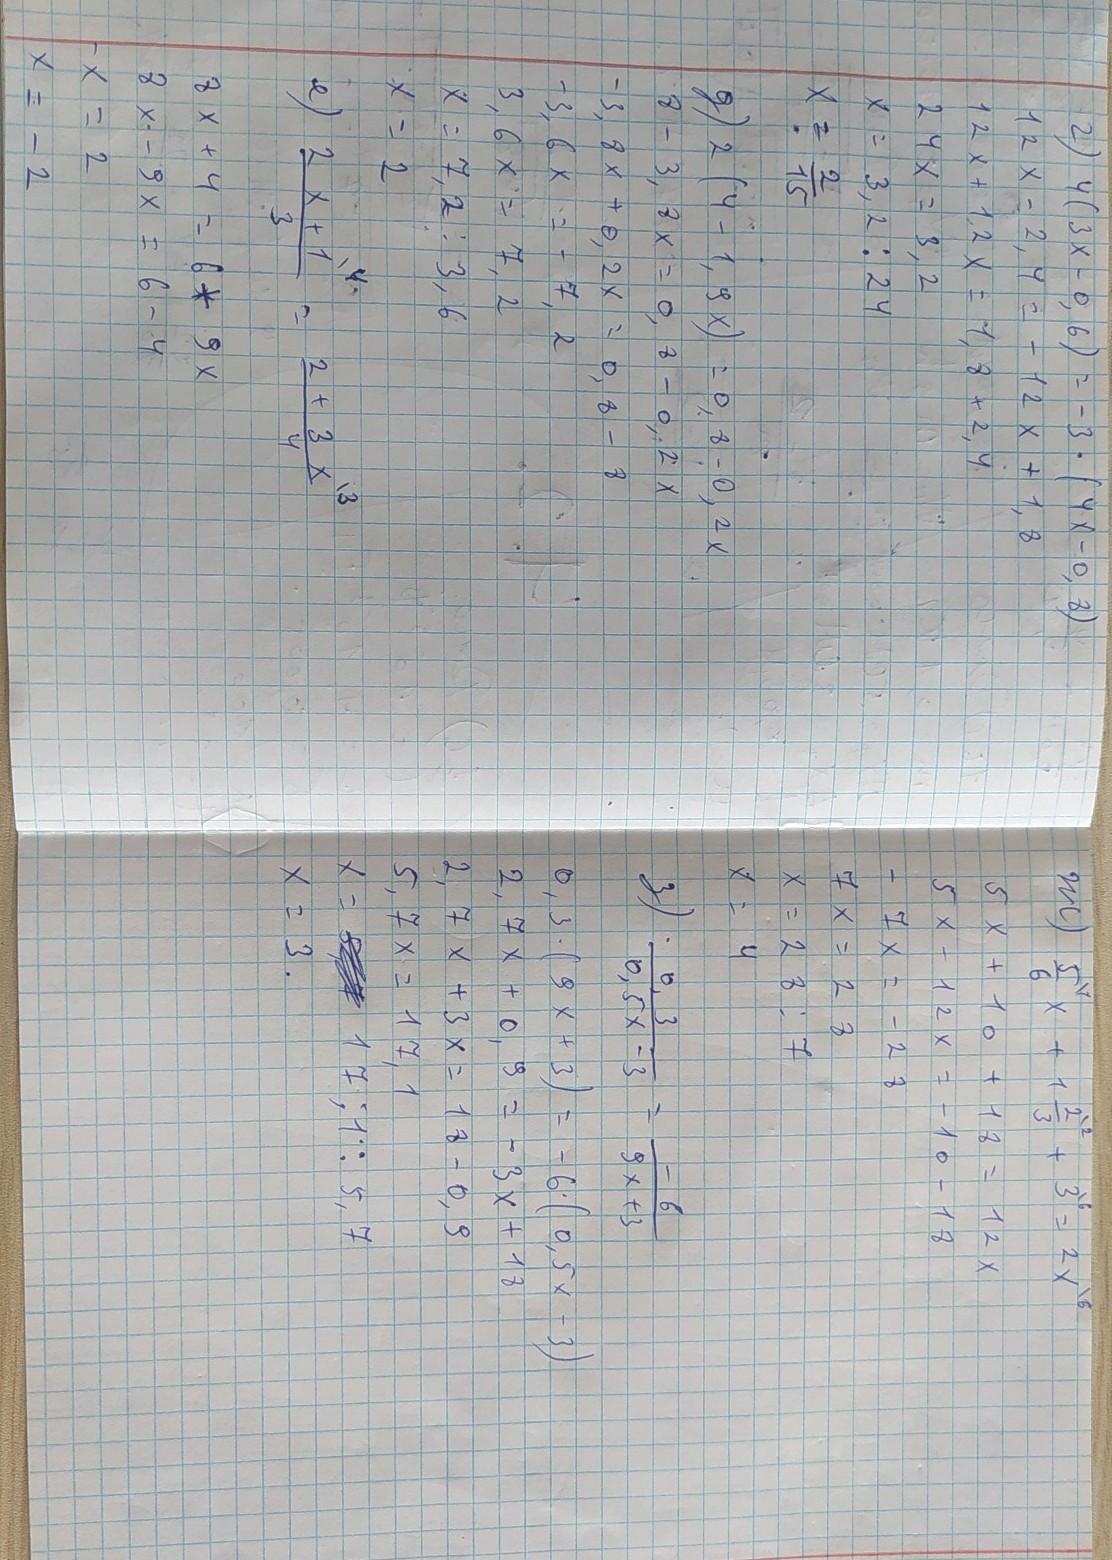 г) 4(3x-0,6)=-3·(4x-0,8)
12x-2,4=-12x+1,8
12x+12x=1,8+2,4
24x=3,2
x=3,2:24
x=2/15
д) 2(4-1,9x)=0,8-0,2x
8-3,8x=0,8-0,2x
-3,8x+0,2x=0,8-8
-3,6x=-7,2
3,6x=7,2
x=7,2:3,6
x=2
е) (2x+1)/3 \4 = (2+3x)/4 \3
8x+4=6+9x
8x-9x=6-4
-x=2
x=-2
ж) 5/6x+1 2/3 \2+3\6=2x\6
5x+10+18=12x
5x-12x=-10-18
-7x=-28
7x=28
x=28:7
x=4
з) 0,3/(0,5x-3) = -6/(9x+3)
0,3·(9x+3)=-6·(0,5x-3)
2,7x+0,9=-3x+18
2,7x+3x=18-0,9
5,7x=17,1
x=17,1:5,7
x=3.